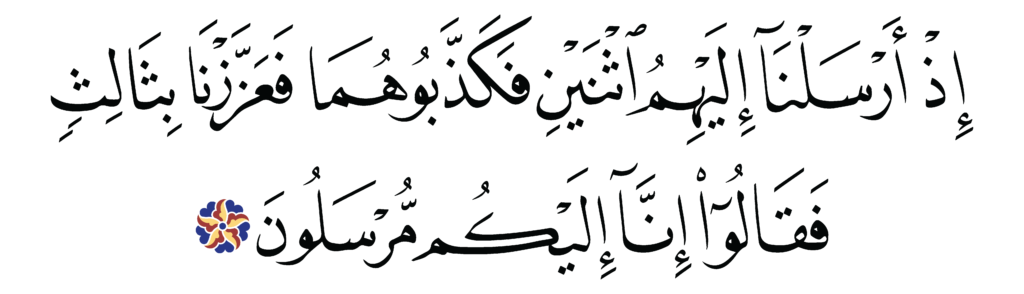 إِذْ أَرْسَلْنَآ إِلَيْهِمُ ٱثْنَيْنِ فَكَذَّبُوهُمَا فَعَزَّزْنَا بِثَالِثٍ
فَقَالُوٓا۟ إِنَّآ إِلَيْكُم مُّرْسَلُونَ